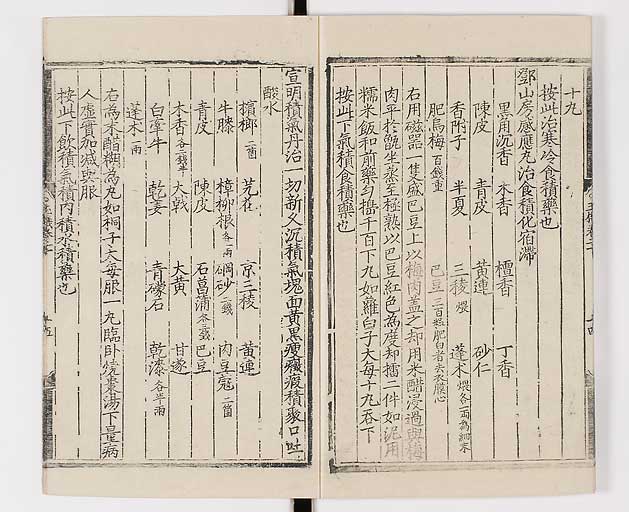 十九
按此治寒冷食積藥也
鄧山房感應丸治食積化宿滯
黒角沉香 木香 檀香 丁香
陳皮 青皮 黄連 砂仁
香附子 半夏 三稜煨 蓬术煨各一兩為細末
肥烏梅百錢重 巴豆三百粒肥白者去衣膜心
右用磁器一隻盛巴豆上以梅肉盖之却用米醋浸過與梅
肉平於甑坐蒸至極熟以巴豆紅色為度却擂二件如泥用
糯米飯和前藥勻搗千百下丸如蘿蔔子大每十丸吞下
按此下氣積食積藥也
宣明積氣丹治一切新久沉積氣塊面黃黒瘦癥瘕積聚口吐
酸水
檳榔二箇 芫花 京三稜 黄連
牛膝 樟柳根各一兩 硇砂二錢 肉豆蔻二箇
青皮 陳皮 石菖蒲各三錢 巴豆
木香各二錢半 大戟 大黄 甘遂
白牽牛 乾姜 青礞石 乾漆各半兩
蓬术一兩
右為末醋糊為丸如桐子大每服一丸臨卧燒棗湯下量病
人虛實加減與服
按此下飲積氣積肉積水積藥也